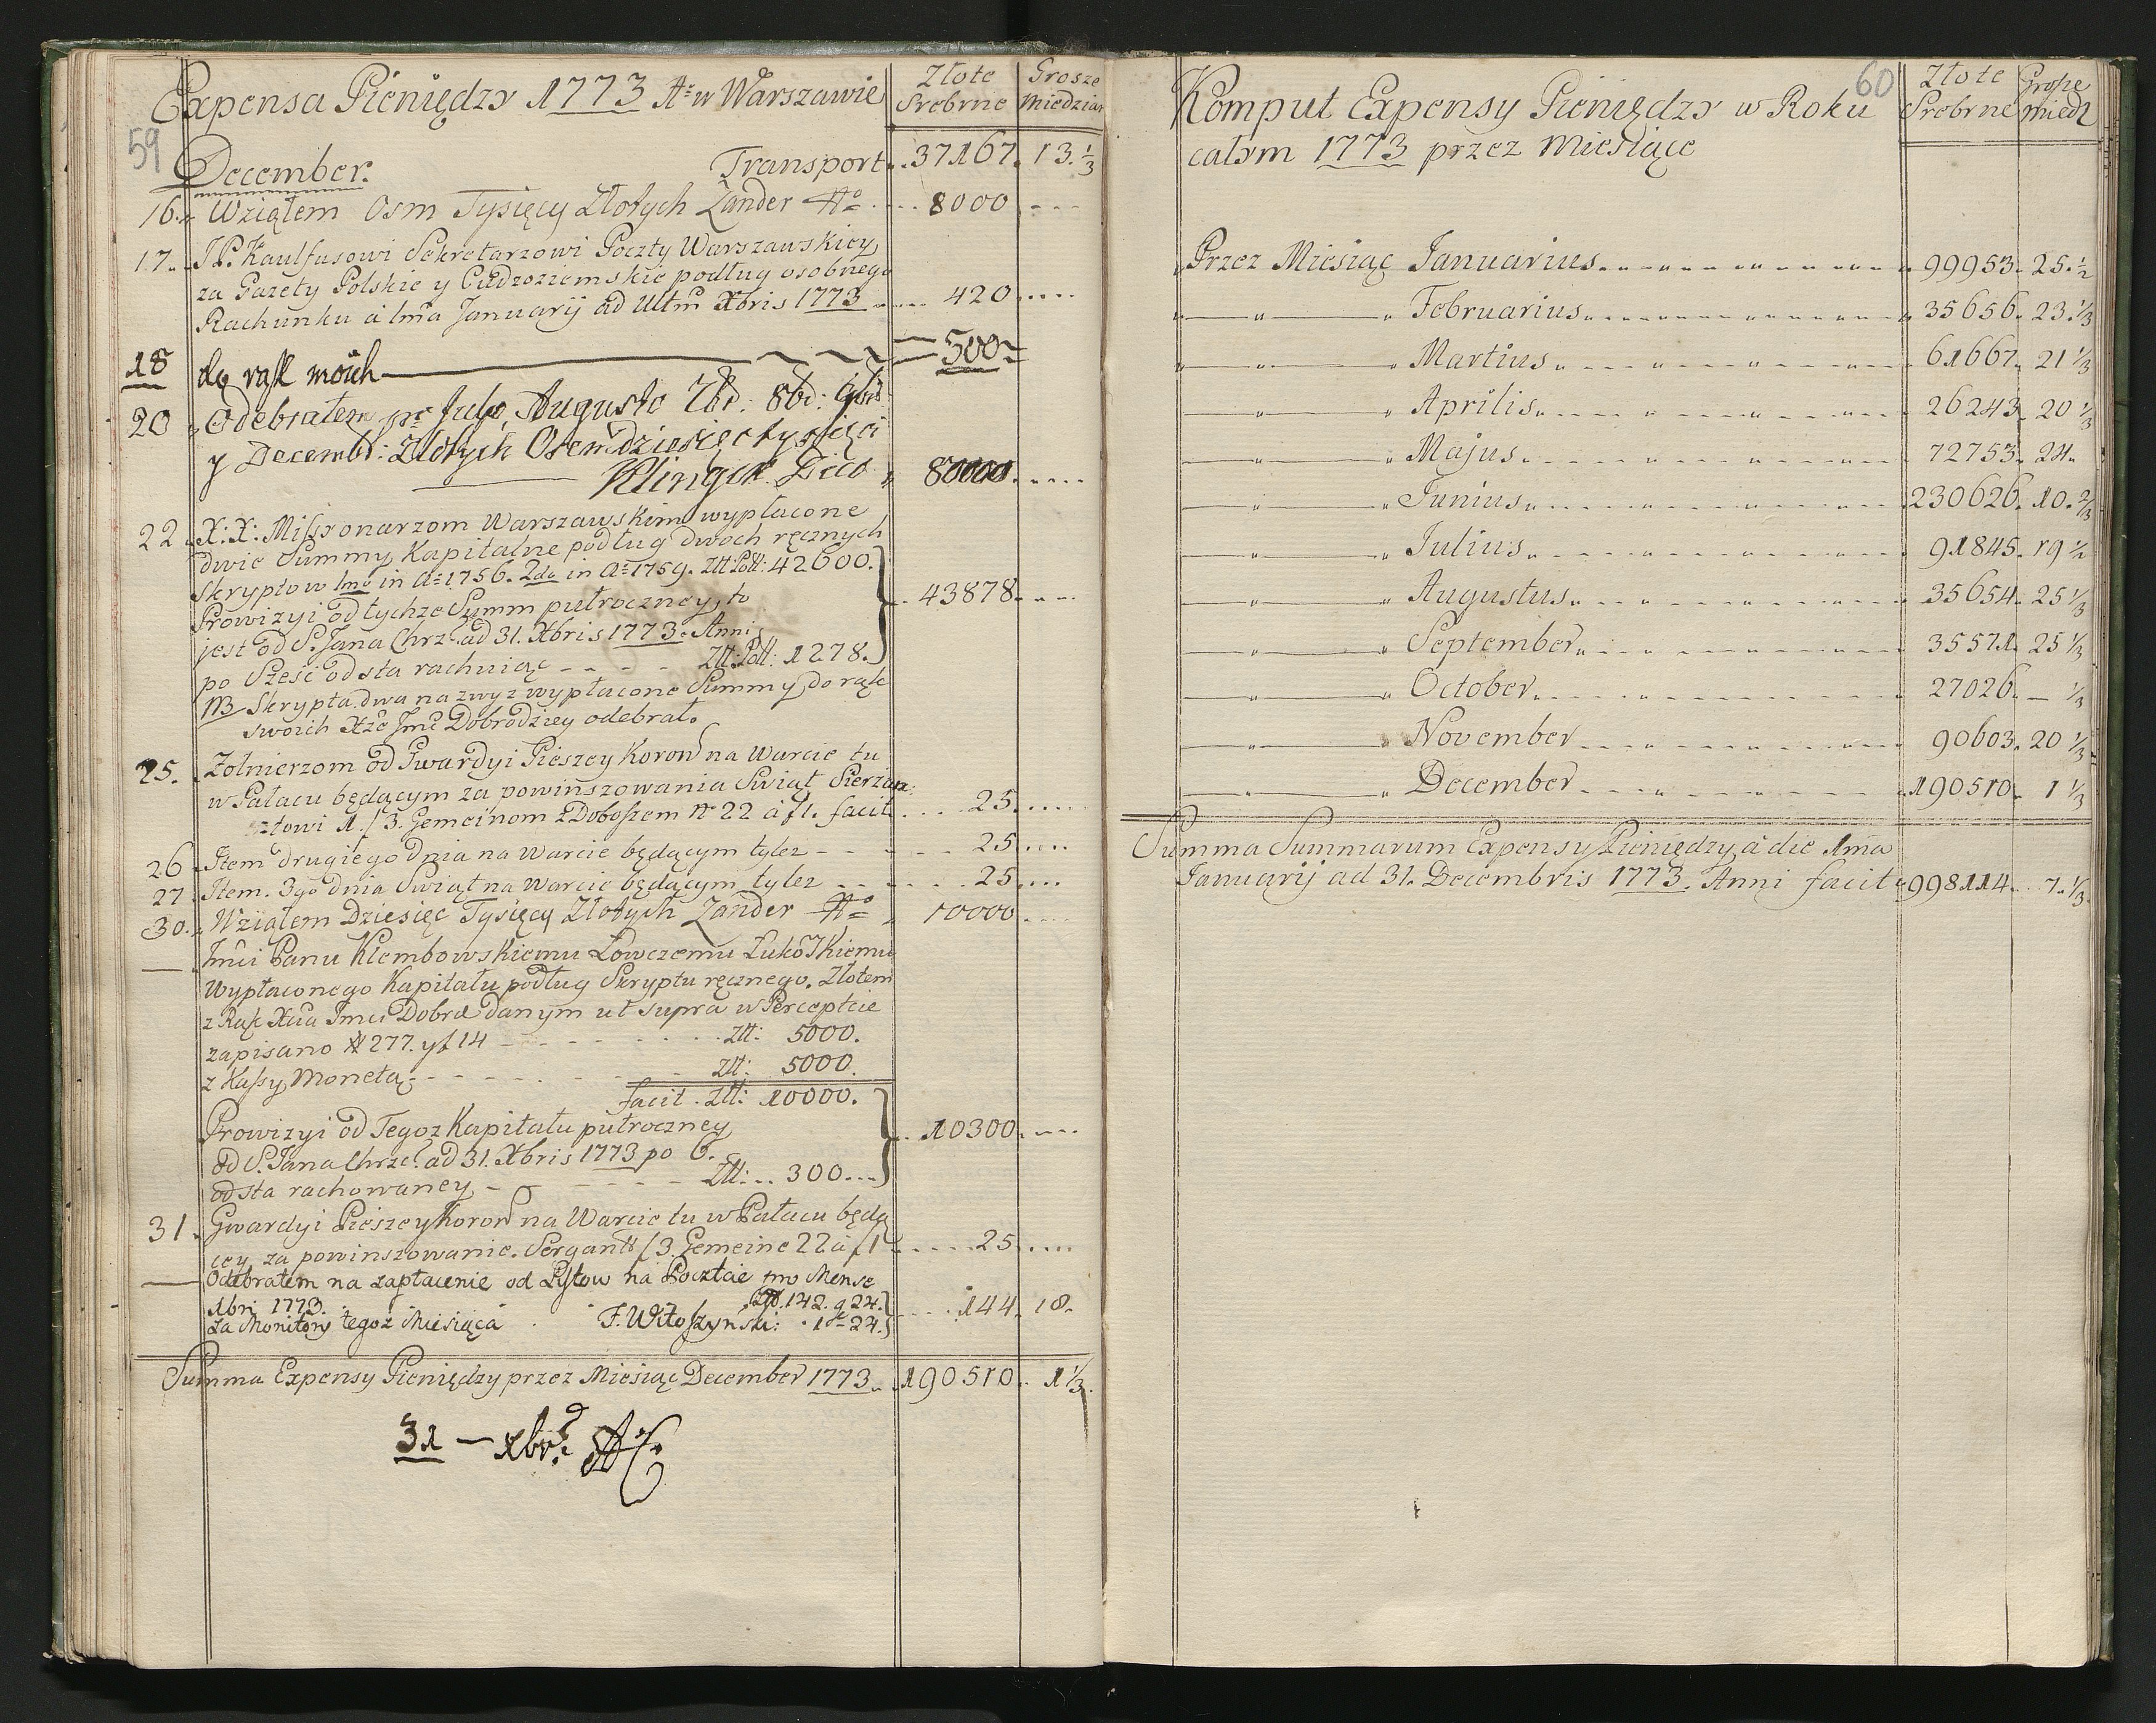 Expensa Pieniędzy 1773 Aº w Warszawie
Złote Srebrne
Grosze Miedzian
59
December.
Transport. 37167. 13.⅓
16. Wziąłem Osm Tysięcy Złotych Zander 8000
17. JP. Kaulfusowi Sekretarzowi Poczty Warszawskiey
za Gazety Polskie y Cudzoziemskie podług osobnego
Rachunku a 1ma Januarij ad Ultm Xbris 1773 420
18 do rąk moich 500
20 Odebrałem pr Julo, Augusto 7br: 8br: 9br:
y Decembr: Złotych Osemdziesięc tysięci
80000
22. X: X: Missyonarzom Warszawskim wypłacone
dwie Summy Kapitalne podług dwoch ręcznych
Skryptow 1mo in Aº 1756. 2do in Aº 1759. Złt: Poll: 42600.
Prowizyi od tychże Summ putroczney, to
jest od S. Jana Chrz. ad 31. Xbris 1773. Anni
43878.
po Sześć od sta rachuiąc Złt: Poll: 1278.
NB Skrypta dwa na zwyz wypłacone Summy do rąk
swoich Xże Jmć Dobrodziey odebrał.
25. Żołnierzom od Gwardyi Pieszey Koron na Warcie tu
w Pałacu będącym za powinszowania Swiąt Sierzan:
złowi 1. f 3. Gemeinom z Doboszem No 22 a f 1. facit 25.
26. Item drugiego dnia na Warcie będącym tylez 25
27. Item. 3go dnia Swiąt na Warcie będącym tylez 25
30. Wziąłem Dziesięc Tysięcy Złotych Zander 10000
— Jmći Panu Klembowskiemu Łowczemu
Wypłaconego Kapitału podług Skryptu ręcznego. Złotem
z Rąk Xcia Jmci Dobrd danym ut supra w Percepcie
zapisano # 277. y f 14 Złt: 5000.
z Kassy Monetą Złt: 5000.
facit. Złt: 10000.
Prowizyi od Tegoz Kapitału putroczney
10300
od S. Jana Chrzc. ad 31. Xbris 1773 po 6.
od sta rachowaney Złt: 300
31. Gwardyi Pieszey Koron na Warcie tu w Pałacu będą
cey za powinszowanie. Sergantt f 3. Gemeine 22 a f 1 25
— Odebrałem na zapłacenie od Lystow na Poczcie pro Mense
Xbri 1773. 142. g 24. 144. 18.
za Monitory tegoz Miesiąca 1 24.
Summa Expensy Pieniędzy przez Miesiąc December 1773. 190510. 1⅓.
31 — xbr.
60
Komput Expensy Pieniędzy w Roku
całym 1773 przez Miesiące
Złote Srebrne
Grosze Miedz
Przez Miesiąc Januarius 99953. 25.½
" " Februarius 35656. 23.⅓
" " Martius 61667. 21⅓
" " Aprilis 26243. 20⅓
" " Majus 72753. 24.
" " Junius 230626. 10.⅔
" " Julius 91845. 19½
" " Augustus 35654. 25⅓
" " September 35571. 25⅓
" " October 27026. — ⅓
" " November 90603. 20⅓
" " December 190510. 1⅓
Summa Summarum Expensy Pieniędzy, a die 1ma
Januarij ad 31. Decembris 1773. Anni facit 998114. 7.⅓